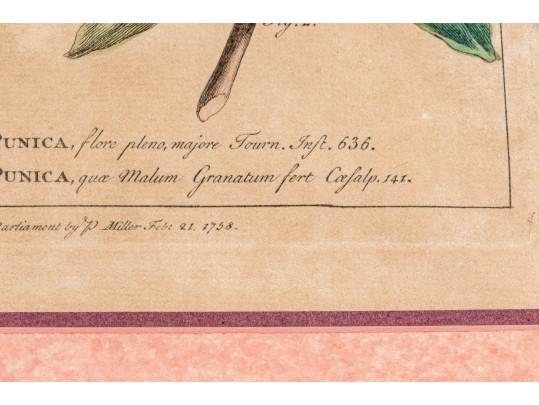 Fig. 2.
PUNICA, flore pleno, majore Tourn. Inst. 636.
PUNICA, quæ Malum Granatum fert Cæsalp. 141.
Parliament by P. Miller Feb: 21. 1758.